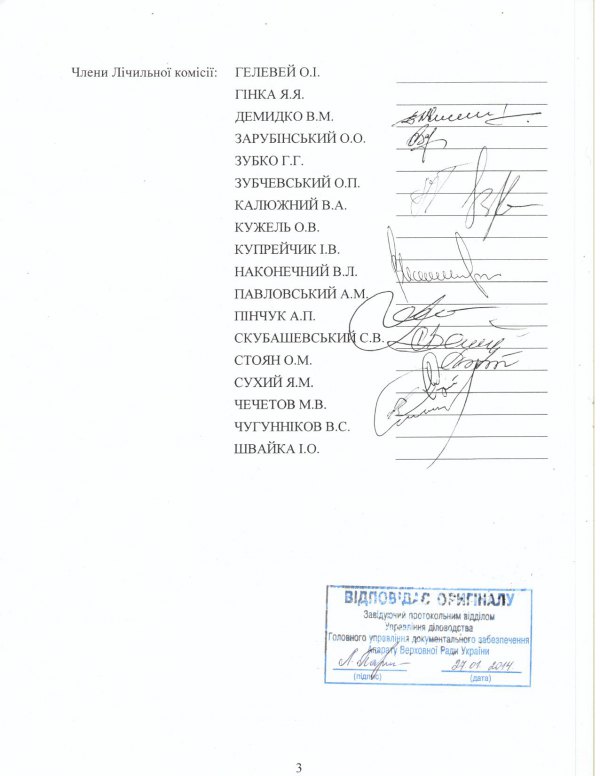 Члени Лічильної комісії: ГЕЛЕВЕЙ О.І.
ГІНКА Я.Я.
ДЕМИДКО В.М.
ЗАРУБІНСЬКИЙ О.О.
ЗУБКО Г.Г.
ЗУБЧЕВСЬКИЙ О.П.
КАЛЮЖНИЙ В.А.
КУЖЕЛЬ О.В.
КУПРЕЙЧИК І.В.
НАКОНЕЧНИЙ В.Л.
ПАВЛОВСЬКИЙ А.М.
ПІНЧУК А.П.
СКУБАШЕВСЬКИЙ С.В.
СТОЯН О.М.
СУХИЙ Я.М.
ЧЕЧЕТОВ М.В.
ЧУГУННІКОВ В.С.
ШВАЙКА І.О.
ВІДПОВІДАЄ ОРИГІНАЛУ
Завідуючий протокольним відділом
Управління діловодства
Головного управління документального забезпечення
Апарату Верховної Ради України
27.01 2014
(підпис) (дата)
3